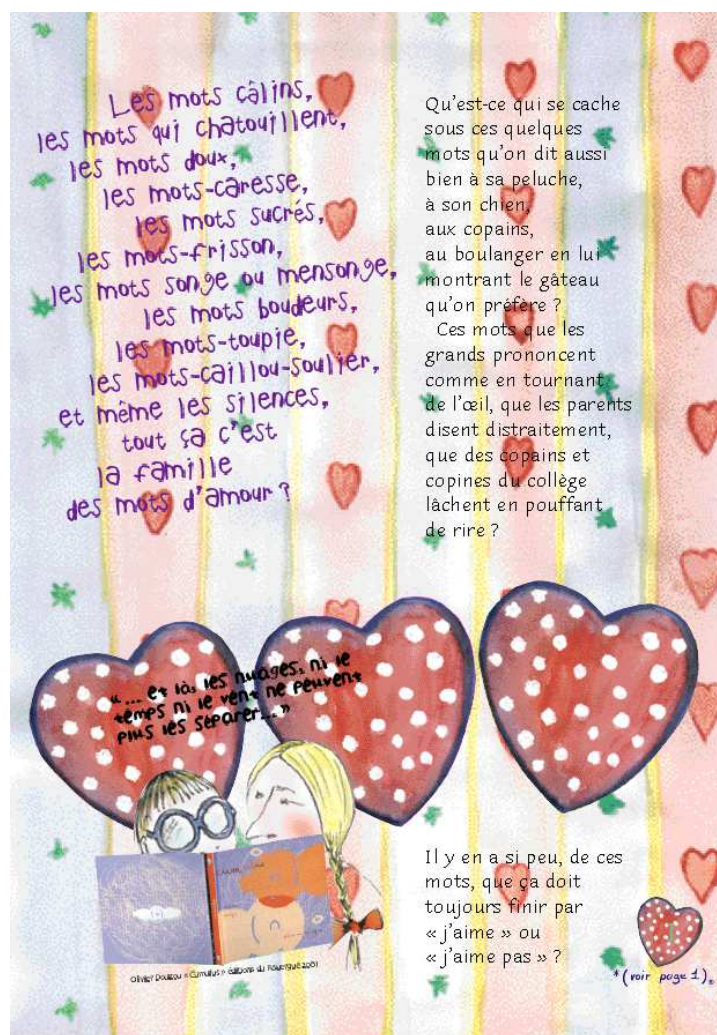 Les mots câlins,
les mots qui chatouillent,
les mots doux,
les mots-caresse,
les mots sucrés,
les mots-frisson,
les mots songe ou mensonge,
les mots boudeurs,
les mots-toupie,
les mots-caillou-soulier,
et même les silences,
tout ça c'est
la famille
des mots d'amour ?
Qu'est-ce qui se cache
sous ces quelques
mots qu'on dit aussi
bien à sa peluche,
à son chien,
aux copains,
au boulanger en lui
montrant le gâteau
qu'on préfère ?
Ces mots que les
grands prononcent
comme en tournant
de l'œil, que les parents
disent distraitement,
que des copains et
copines du collège
lâchent en pouffant
de rire ?
« ... et là, les nuages, ni le
temps ni le vent ne peuvent
plus les séparer... »
Olivier Douzou « Cumulus » éditions du Rouergue 2001
Il y en a si peu, de ces
mots, que ça doit
toujours finir par
« j'aime » ou
« j'aime pas » ?
*(voir page 1)